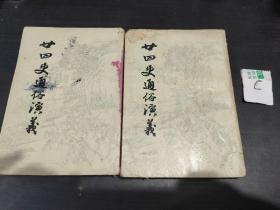 廿四史通俗演義
廿四史通俗演義
C